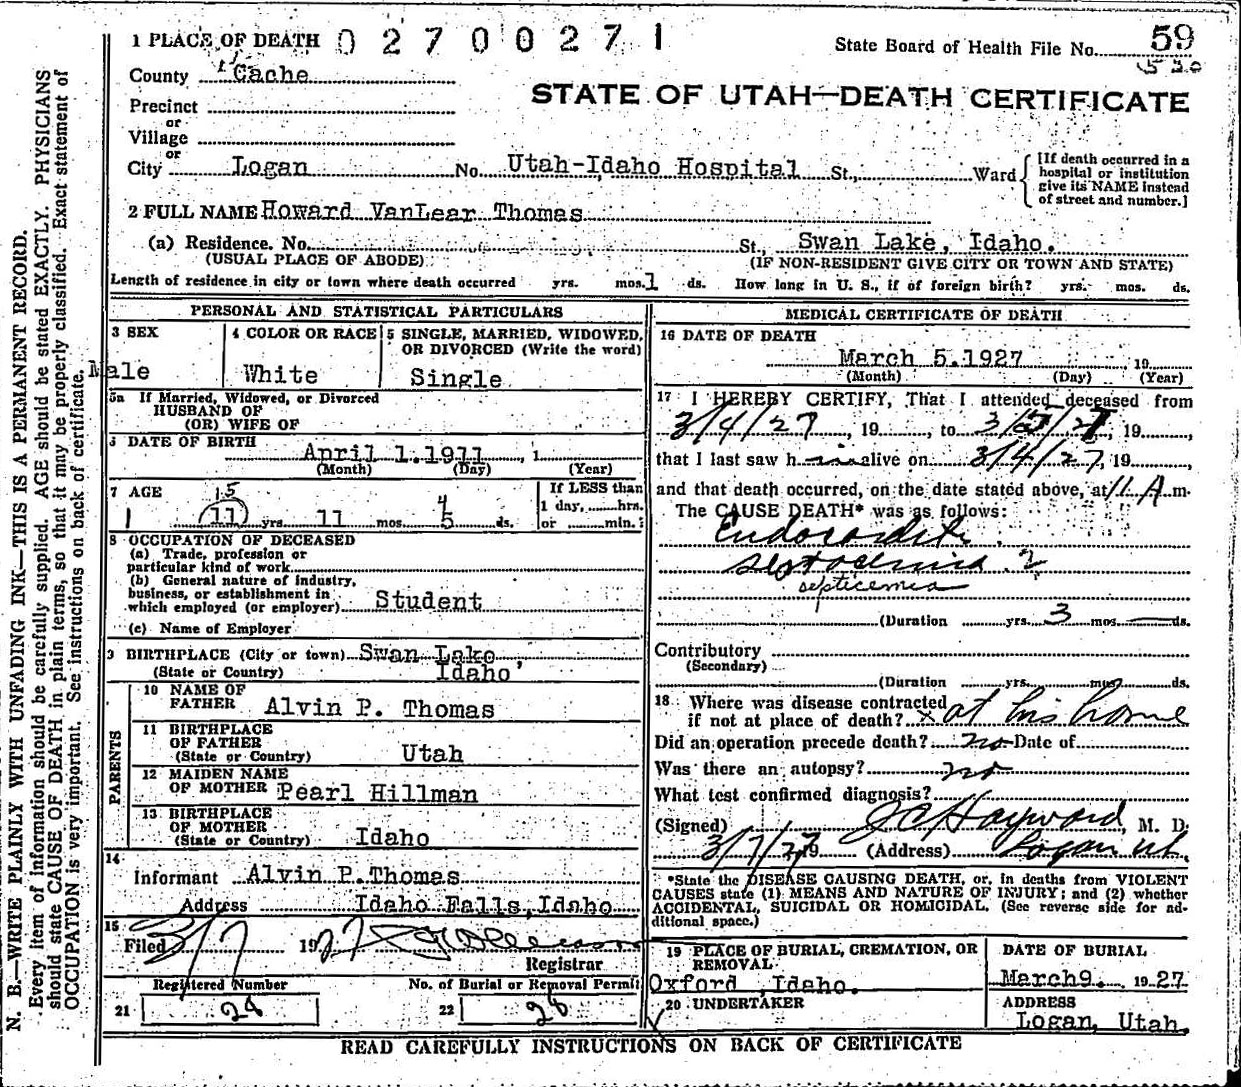 1 PLACE OF DEATH 02700271
State Board of Health File No. 59
County Cache
530
STATE OF UTAH—DEATH CERTIFICATE
Precinct
or
Village
or
City Logan No. Utah-Idaho Hospital St., Ward
[If death occurred in a hospital or institution give its NAME instead of street and number.]
2 FULL NAME Howard VanLear Thomas
(a) Residence. No. St. Swan Lake, Idaho.
(USUAL PLACE OF ABODE) (IF NON-RESIDENT GIVE CITY OR TOWN AND STATE)
Length of residence in city or town where death occurred yrs. mos. 1 ds. How long in U. S., if of foreign birth? yrs. mos. ds.
PERSONAL AND STATISTICAL PARTICULARS
3 SEX
Male
4 COLOR OR RACE
White
5 SINGLE, MARRIED, WIDOWED,
OR DIVORCED (Write the word)
Single
5a If Married, Widowed, or Divorced
HUSBAND OF
(OR) WIFE OF
6 DATE OF BIRTH
April 1.1911, 1
(Month) (Day) (Year)
7 AGE
15 4
11 yrs. 11 mos. 5 ds.
If LESS than
1 day, hrs.
or min.
8 OCCUPATION OF DECEASED
(a) Trade, profession or
particular kind of work
(b) General nature of industry,
business, or establishment in
which employed (or employer) Student
(c) Name of Employer
9 BIRTHPLACE (City or town) Swan Lake,
(State or Country) Idaho
PARENTS
10 NAME OF
FATHER Alvin P. Thomas
11 BIRTHPLACE
OF FATHER
(State or Country) Utah
12 MAIDEN NAME
OF MOTHER Pearl Hillman
13 BIRTHPLACE
OF MOTHER
(State or Country) Idaho
14
Informant Alvin P.Thomas
Address Idaho Falls,Idaho
15
Filed 3/7 1927
Registrar
Registered Number No. of Burial or Removal Permit
21 28 22 28
MEDICAL CERTIFICATE OF DEATH
16 DATE OF DEATH
March 5.1927, 19
(Month) (Day) (Year)
17 I HEREBY CERTIFY, That I attended deceased from
3/4/27, 19, to 3/5/27, 19,
that I last saw h im alive on 3/4/27, 19,
and that death occurred, on the date stated above, at 11 A m.
The CAUSE DEATH* was as follows:
Endocardits
septicemia
(Duration yrs. 3 mos. — ds.
Contributory
(Secondary)
(Duration yrs. mos. ds.
18 Where was disease contracted
if not at place of death? x at his home
Did an operation precede death? no Date of
Was there an autopsy? no
What test confirmed diagnosis?
(Signed) J C Hayward, M. D.
3/7/27 19 (Address) Logan Ut.
*State the DISEASE CAUSING DEATH, or, in deaths from VIOLENT
CAUSES state (1) MEANS AND NATURE OF INJURY; and (2) whether
ACCIDENTAL, SUICIDAL OR HOMICIDAL. (See reverse side for ad-
ditional space.)
19 PLACE OF BURIAL, CREMATION, OR
REMOVAL
Oxford ,Idaho.
DATE OF BURIAL
March9. 1927
20 UNDERTAKER
ADDRESS
Logan, Utah.
READ CAREFULLY INSTRUCTIONS ON BACK OF CERTIFICATE
N. B.—WRITE PLAINLY WITH UNFADING INK—THIS IS A PERMANENT RECORD.
Every item of information should be carefully supplied. AGE should be stated EXACTLY. PHYSICIANS
should state CAUSE OF DEATH in plain terms, so that it may be properly classified. Exact statement of
OCCUPATION is very important. See instructions on back of certificate.